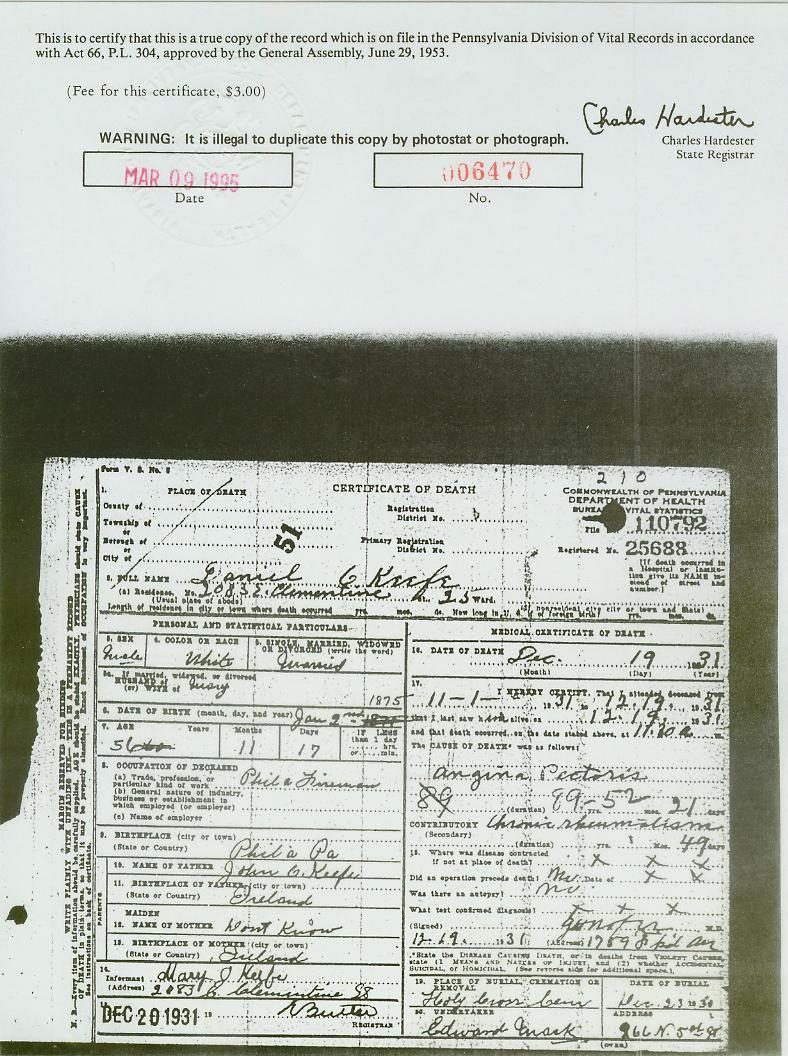 This is to certify that this is a true copy of the record which is on file in the Pennsylvania Division of Vital Records in accordance
with Act 66, P.L. 304, approved by the General Assembly, June 29, 1953.
(Fee for this certificate, $3.00)
Charles Hardester
WARNING: It is illegal to duplicate this copy by photostat or photograph.
Charles Hardester
State Registrar
MAR 09 1995
006470
Date
No.
Form V. S. No. 5
210
1. PLACE OF DEATH
CERTIFICATE OF DEATH
COMMONWEALTH OF PENNSYLVANIA
DEPARTMENT OF HEALTH
BUREAU VITAL STATISTICS
County of
Registration
District No.
File 110792
Township of
or
Borough of
or
City of
51
Primary Registration
District No.
Registered No. 25688
(If death occurred in
a Hospital or Institu-
tion give its NAME in-
stead of street and
number.)
2. FULL NAME Daniel O'Keefe
(a) Residence. No. 2083 E. Clementine St. 25 Ward.
(Usual place of abode)
Length of residence in city or town where death occurred yrs. mos. ds. How long in U. S. if of foreign birth? yrs. mos. ds.
PERSONAL AND STATISTICAL PARTICULARS
3. SEX
Male
4. COLOR OR RACE
White
5. SINGLE, MARRIED, WIDOWED
OR DIVORCED (write the word)
Married
5a. If married, widowed, or divorced
HUSBAND of
(or) WIFE of Mary
6. DATE OF BIRTH (month, day, and year) Jan 2nd 1875
7. AGE Years Months Days IF LESS
than 1 day
hrs.
or min.
56 11 17
8. OCCUPATION OF DECEASED
(a) Trade, profession, or
particular kind of work
Phila Fireman
(b) General nature of industry,
business or establishment in
which employed (or employer)
(c) Name of employer
9. BIRTHPLACE (city or town)
(State or Country)
Phil'a Pa
10. NAME OF FATHER John O'Keefe
11. BIRTHPLACE OF FATHER (city or town)
(State or Country) Ireland
PARENTS
MAIDEN
12. NAME OF MOTHER Dont Know
13. BIRTHPLACE OF MOTHER (city or town)
(State or Country) Ireland
14.
Informant Mary J Keefe
(Address) 2083 E Clementine St
DEC 20 1931
REGISTRAR
MEDICAL CERTIFICATE OF DEATH
16. DATE OF DEATH Dec. 19 1931
(Month) (Day) (Year)
17. I HEREBY CERTIFY, That I attended deceased from
11-1- 1931, 12-19, 1931
that I last saw him alive on 12-19, 1931
and that death occurred, on the date stated above, at 11.60 a m.
The CAUSE OF DEATH* was as follows:
Angina Pectoris
89 89-52
(duration) yrs. mos. 21 days
CONTRIBUTORY Chronic rheumatism
(Secondary)
(duration) yrs. mos. 49 days
18. Where was disease contracted
if not at place of death? x x x
Did an operation precede death? No. Date of x x
Was there an autopsy? no
What test confirmed diagnosis? x x x
(Signed) M.D.
12-19. 1931 (Address) 1759
*State the DISEASE CAUSING DEATH, or in deaths from VIOLENT CAUSES,
state (1) MEANS AND NATURE OF INJURY, and (2) whether ACCIDENTAL,
SUICIDAL, or HOMICIDAL. (See reverse side for additional space.)
19. PLACE OF BURIAL, CREMATION OR
REMOVAL
Holy Cross Cem
DATE OF BURIAL
Dec. 23
20. UNDERTAKER
Edward
ADDRESS
966 N. 5th St
(OVER)
MARGIN RESERVED FOR BINDING
WRITE PLAINLY WITH UNFADING INK—THIS IS A PERMANENT RECORD
N. B.—Every item of information should be carefully supplied. AGE should be stated EXACTLY. PHYSICIANS should state CAUSE
OF DEATH in plain terms, so that it may be properly classified. Exact statement of OCCUPATION is very important.
See instructions on back of certificate.